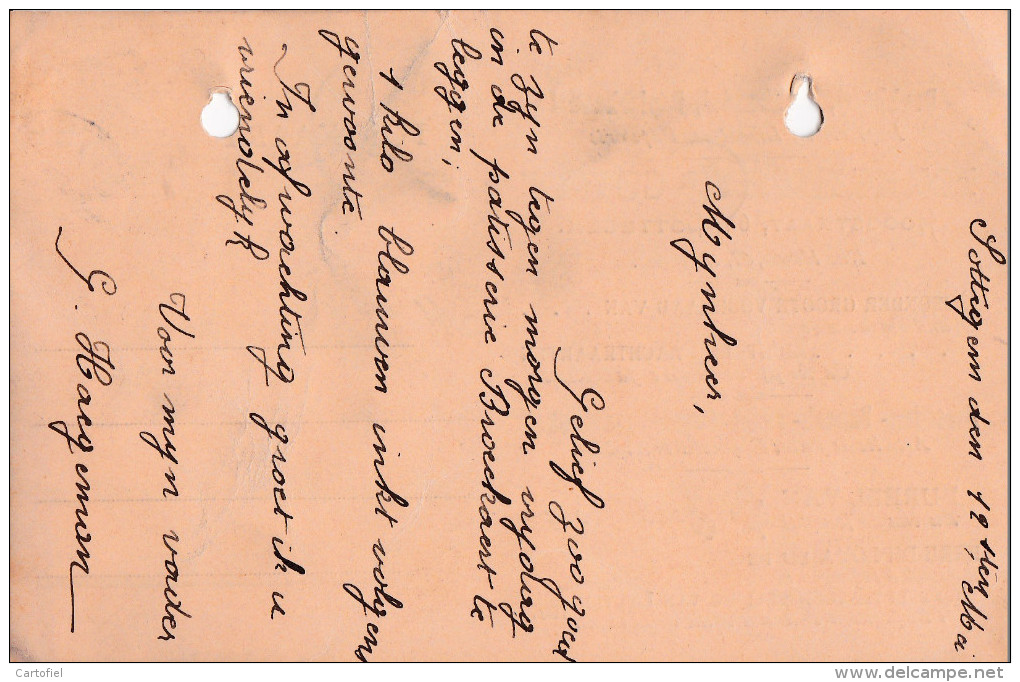 Sottegem den 12 sten Mei
Mynheer,
Gelief zoo goed
te zyn tegen morgen vrydag
in de patisserie Broeckaert te
leggen;
1 kilo blauwen inkt volgens
gewoonte.
In afwachting groet ik u
vriendelyk
Voor myn vader
G. Haegeman
Cartofiel
www.delcampe.net